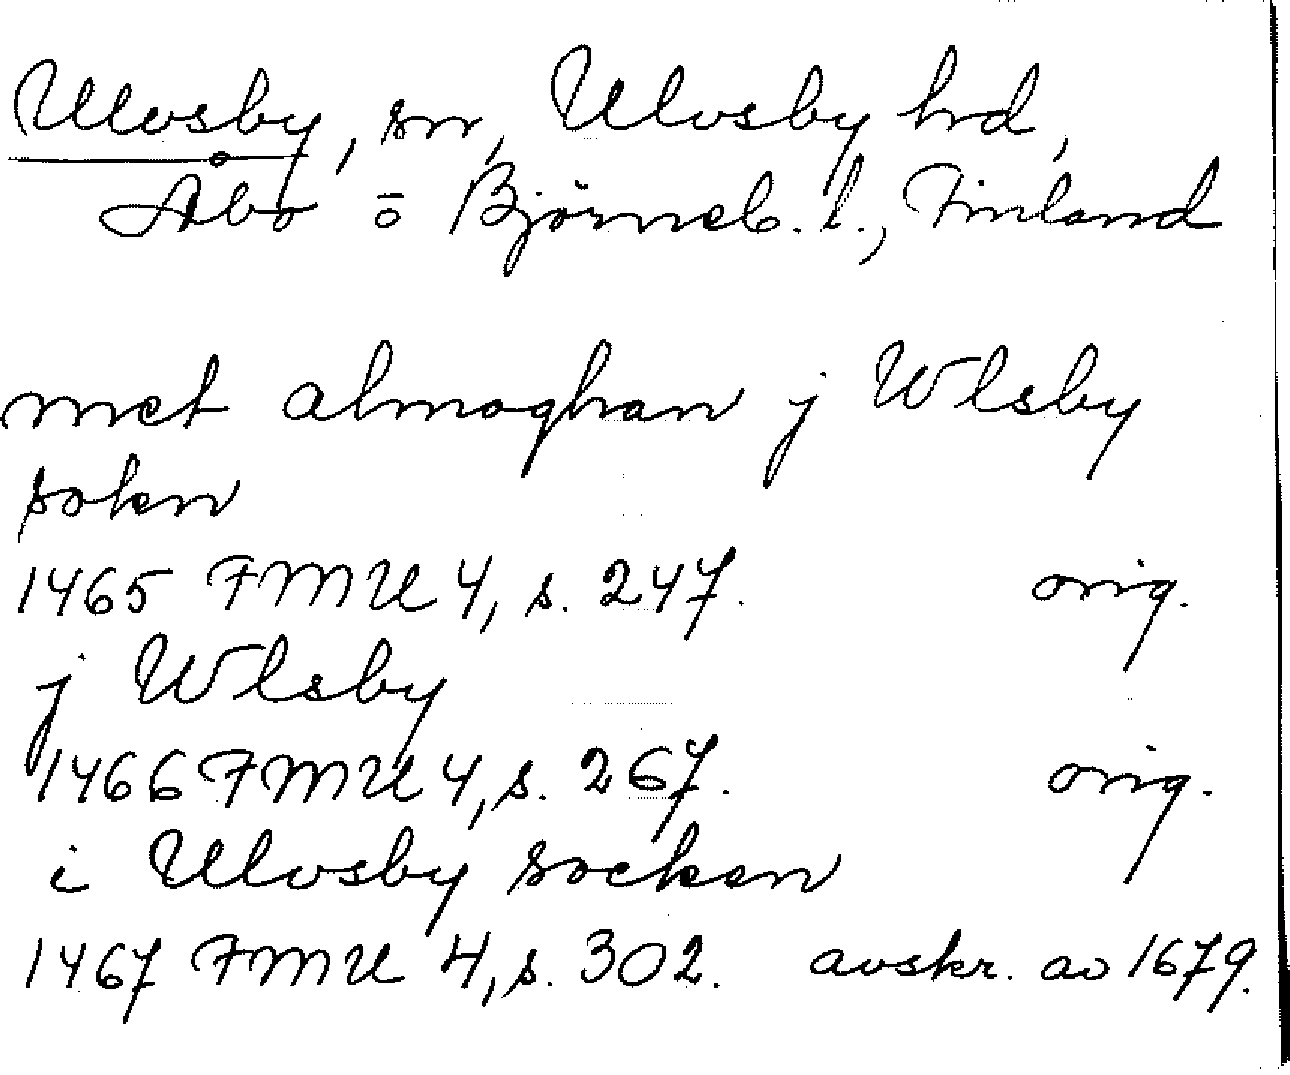 Ulvsby, sn, Ulvsby hd,
Åbo o Björneb. l., Finland
met almoghan j Wlsby
sokn
1465 FMU 4, s. 247. orig.
j Wlsby
1466 FMU 4, s. 267. orig.
i Ulvsby socken
1467 FMU 4, s. 302. avskr. av 1679.